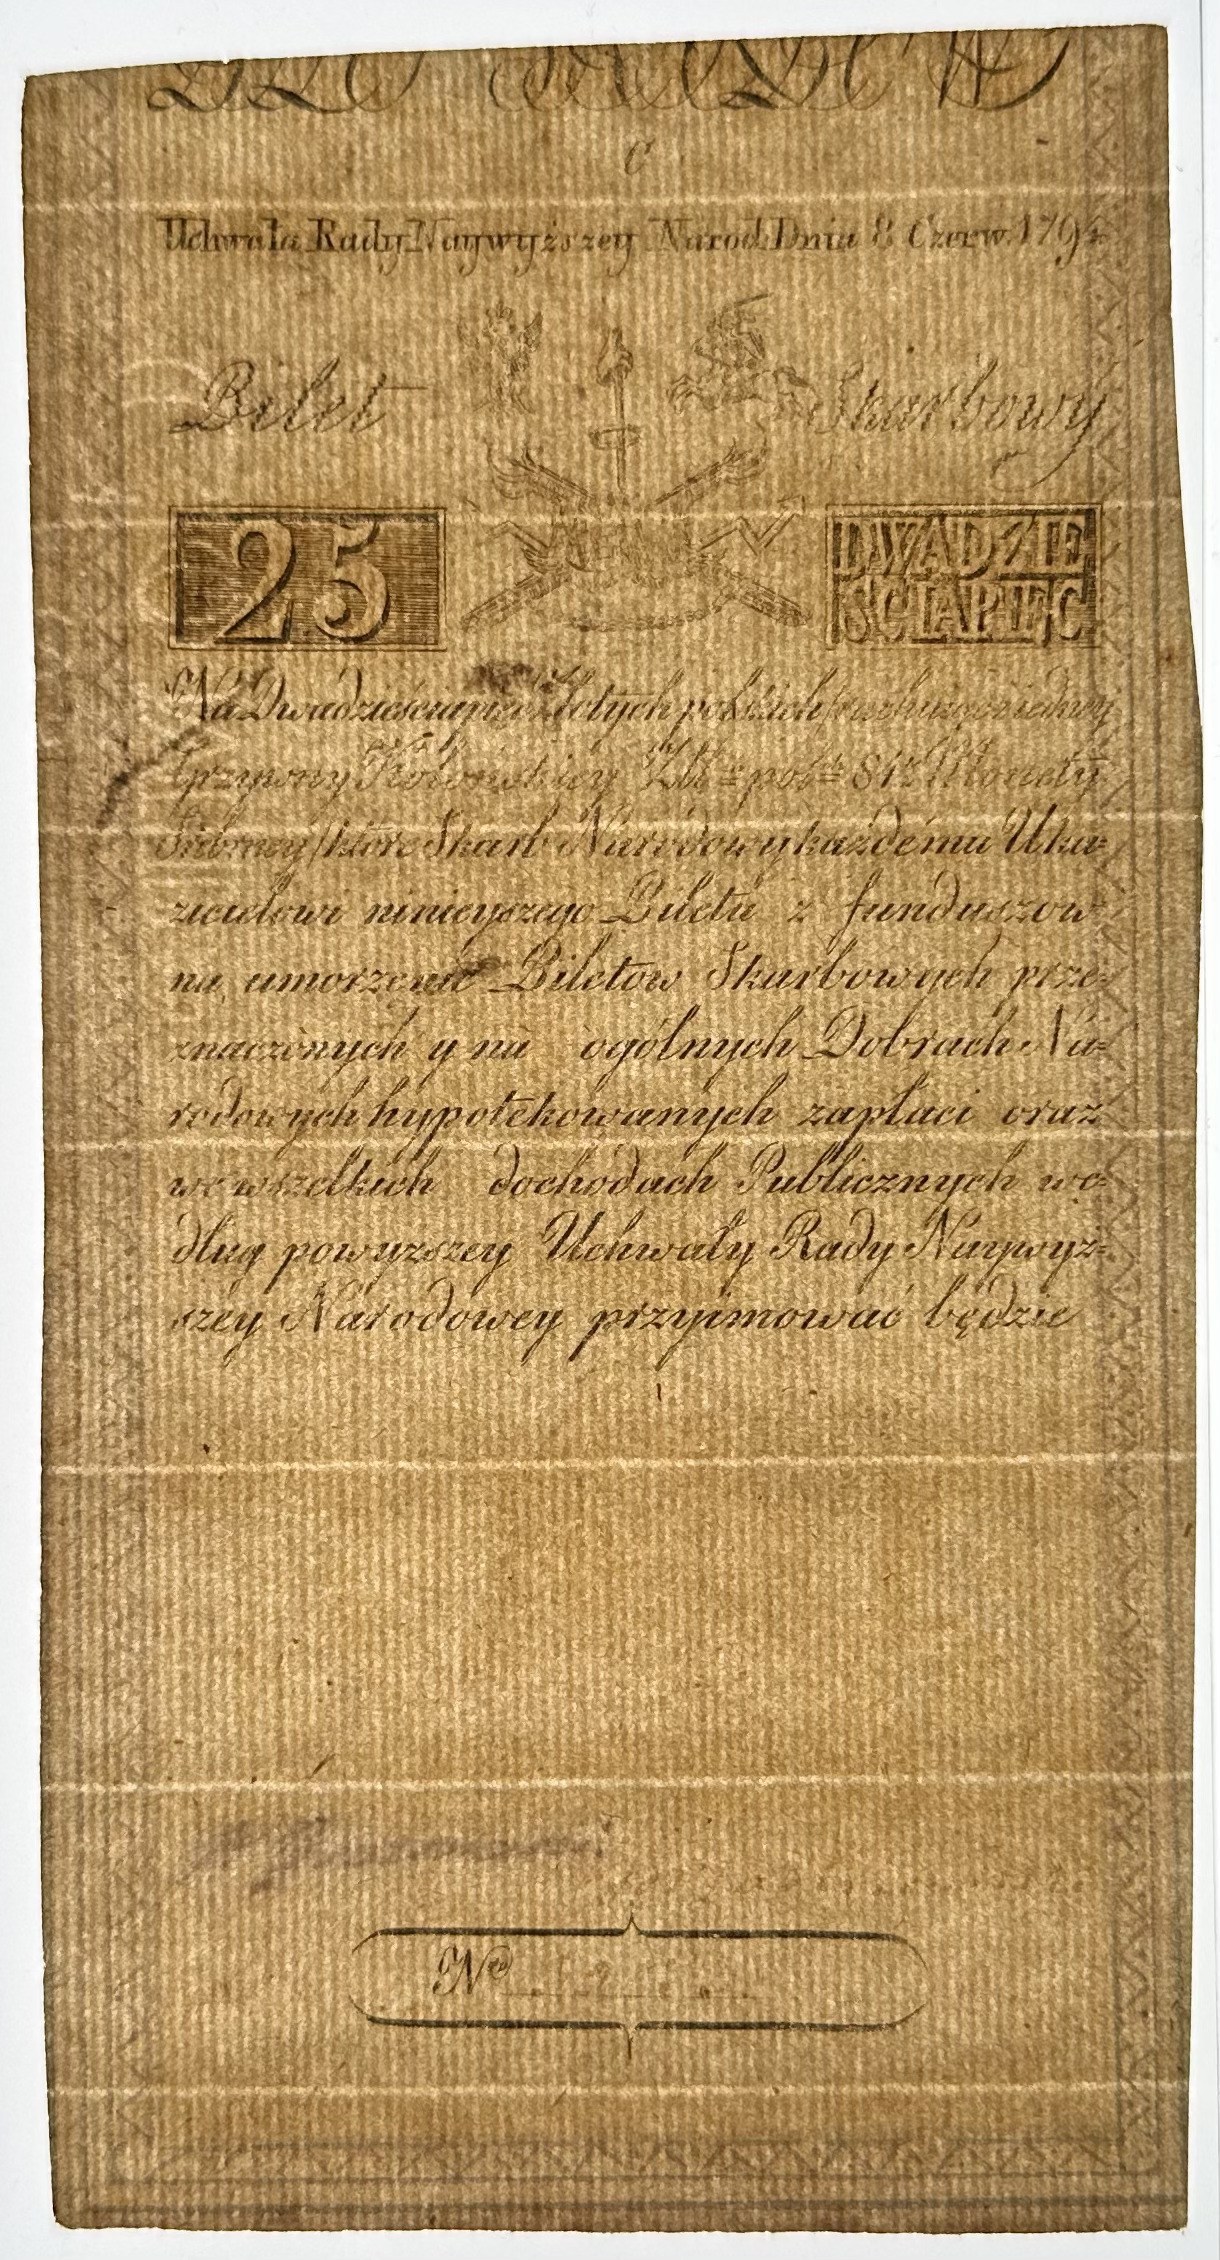 C
Uchwała Rady Naywyższey Narod: Dnia 8 Czerw. 1794
Bilet Skarbowy
25 DWADZIE
SCIAPIĘC
Na Dwadzieściapięć Złotych polskich
Grzywny Kolońskiey Zło: pols: 84 1/2 Monety
Srebrney/ które Skarb Narodowy każdemu Uka=
zicielowi ninieyszego Biletu z funduszow
na umorzenie Biletow Skarbowych prze=
znaczonych y na ogólnych Dobrach Na=
rodowych hypotekowanych zapłaci oraz
we wszelkich dochodach Publicznych we=
dług powyższey Uchwały Rady Naywyż=
szey Narodowey przyimować będzie
Nro